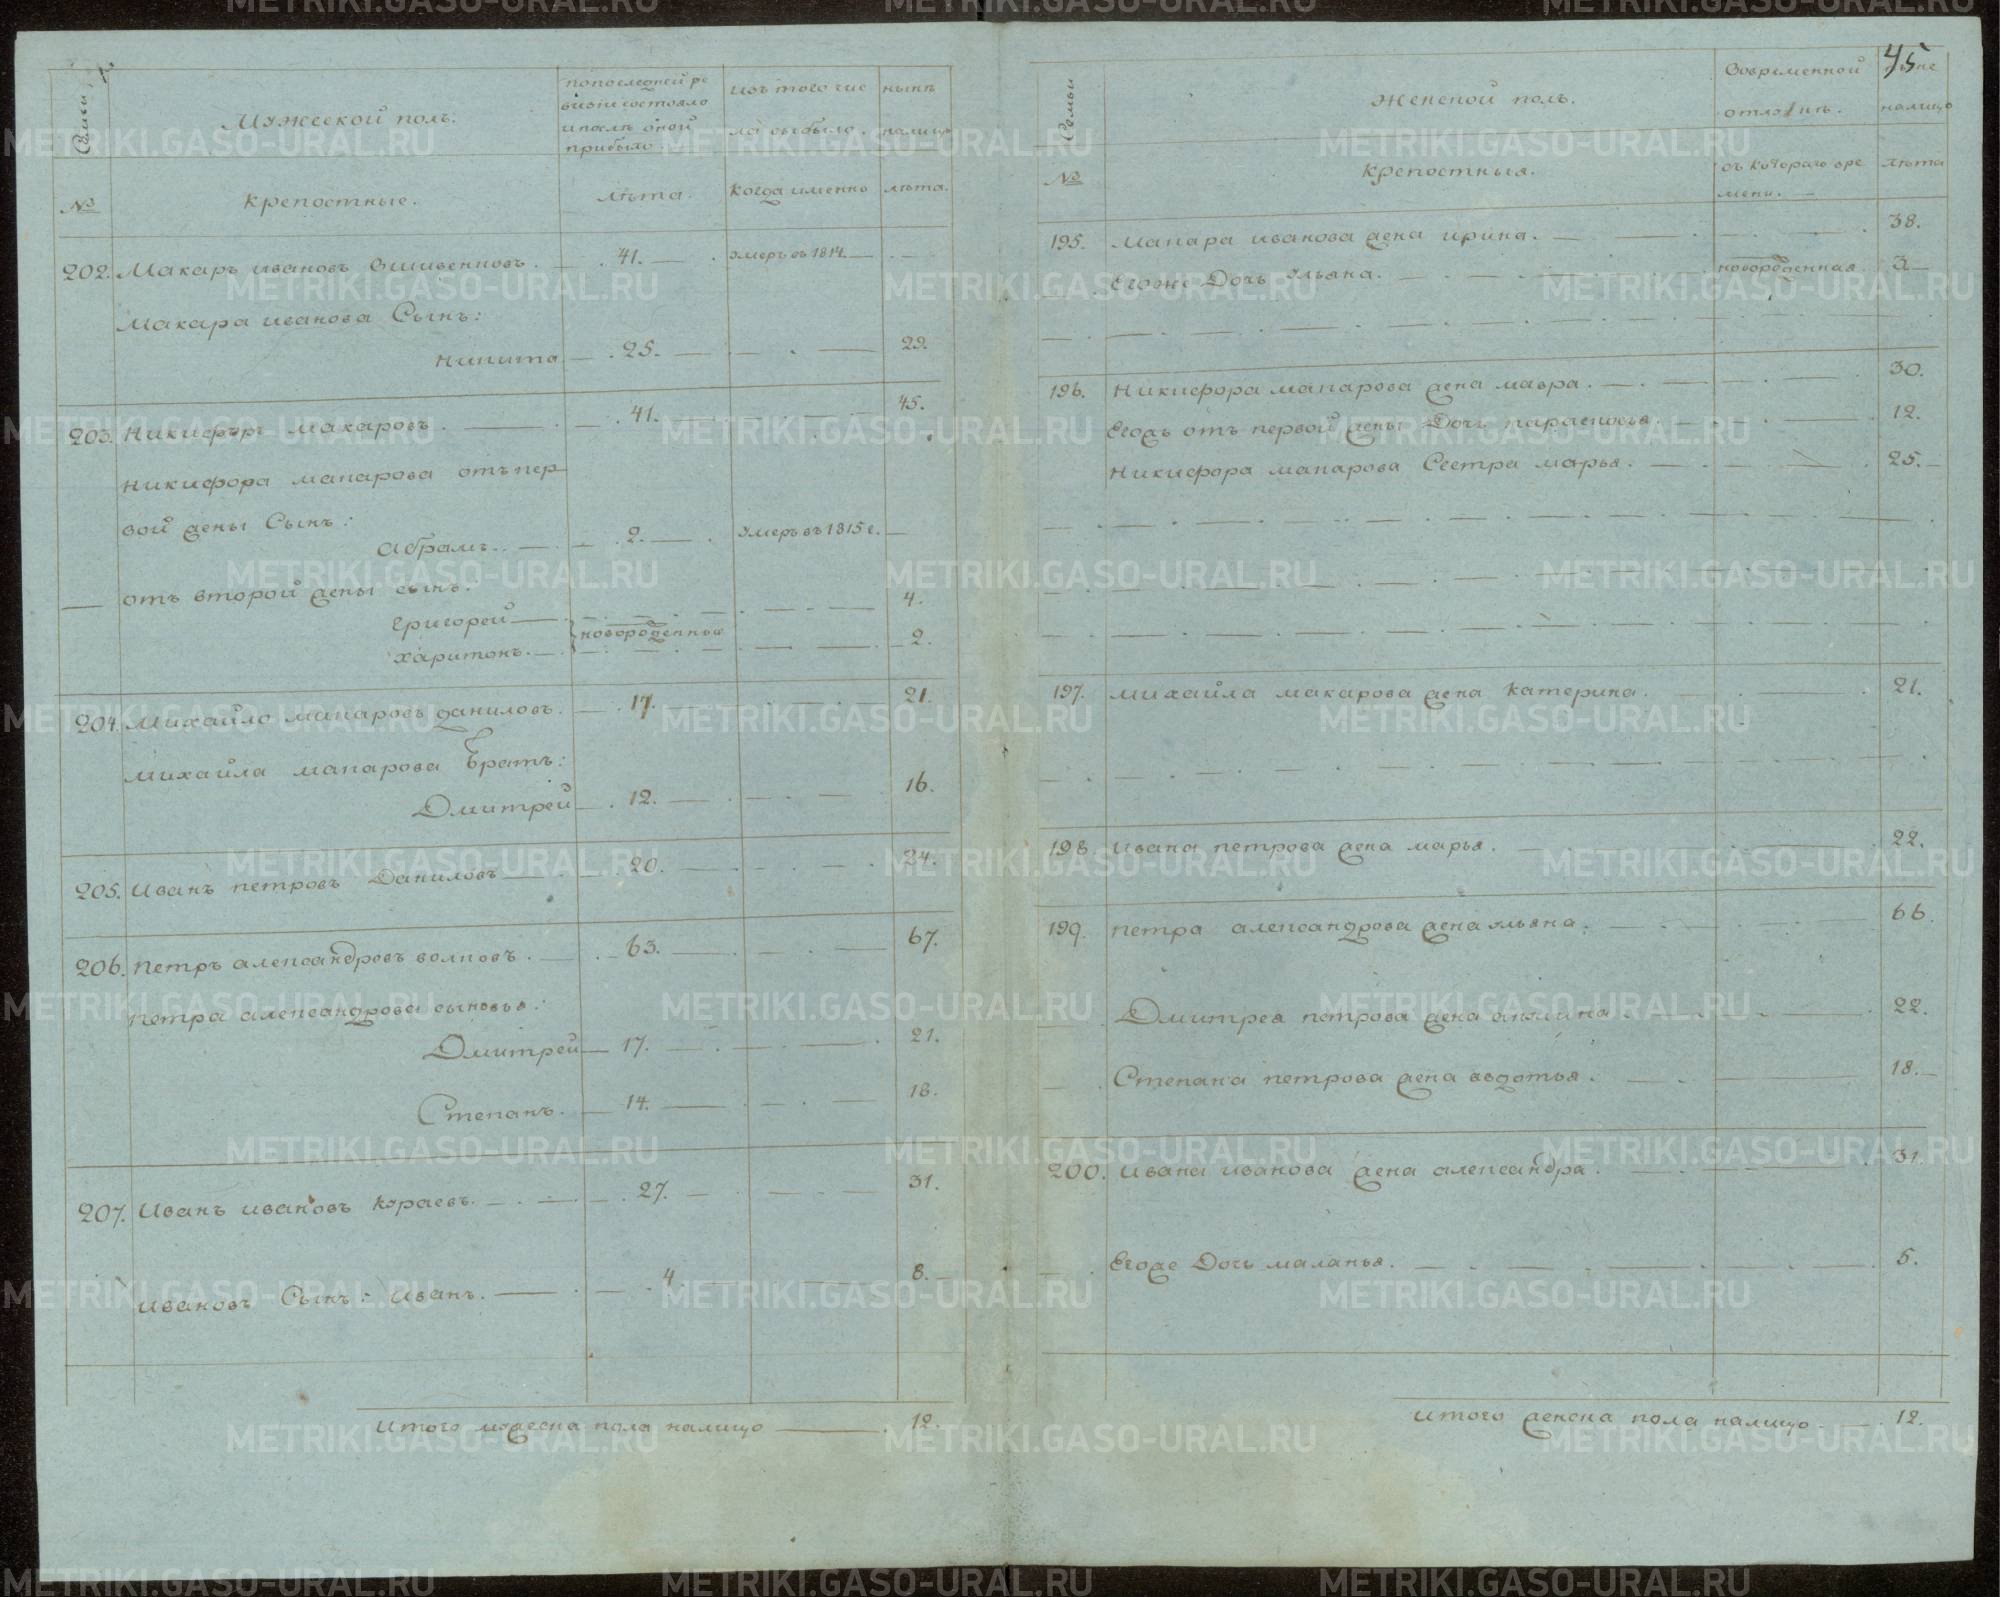 45
Семьи
Мужеской полъ.
по последней ре
визiи состояло
и послѣ оной
прибыло
изъ того чис
ла выбыло.
нынѣ
налицо
№
Крепостные.
лѣта.
Когда именно
лѣта.
202. Макаръ ивановъ . 41. умеръ въ 1814.
Макара иванова Сынъ:
никита 25. 29.
203. Никифоръ макаровъ. 41. 45.
никифора макарова отъ пер
вой жены Сынъ:
абрамъ. 2. умеръ въ 1815 г.
отъ второй жены сынъ.
григорей 4.
новорожденные
харитонъ. 2.
204. Михайло макаровъ даниловъ. 17. 21.
михайла макарова братъ:
Дмитрей 12. 16.
205. Иванъ петровъ Даниловъ 20. 24.
206. Петръ александровъ волковъ. 63. 67.
петра александрова сыновья:
Дмитрей 17. 21.
Степанъ. 14. 18.
207. Иванъ ивановъ Караевъ. 27. 31.
ивановъ Сынъ: иванъ. 4. 8.
итого мужеска пола налицо 12.
Семьи
Женской полъ.
Вовременной
отлучкѣ.
ныне
налицо
№
Крепостныя.
съ котораго вре
мени.
лѣта
195. Макара иванова жена ирина. 38.
Егоже Дочь ульяна. новорожденная. 3
196. Никифора макарова жена мавра. 30.
Егожъ отъ первой жены Дочь парасковья 12.
никифора макарова Сестра марья. 25.
197. михайла макарова жена Катерина. 21.
198. ивана петрова жена марья. 22.
199. петра александрова жена ульяна. 66.
Дмитрея петрова жена 22.
Степана петрова жена авдотья. 18.
200. ивана иванова жена александра. 31.
Егоже Дочь маланья. 5.
итого женска пола налицо 12.
METRIKI.GASO-URAL.RU